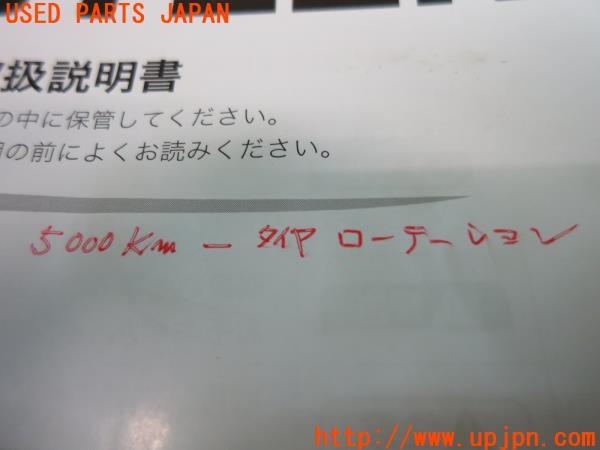 USED PARTS JAPAN
扱説明書
の中に保管してください。
の前によくお読みください。
5000Km ー タイヤ ローテーション
http://www.upjpn.com/